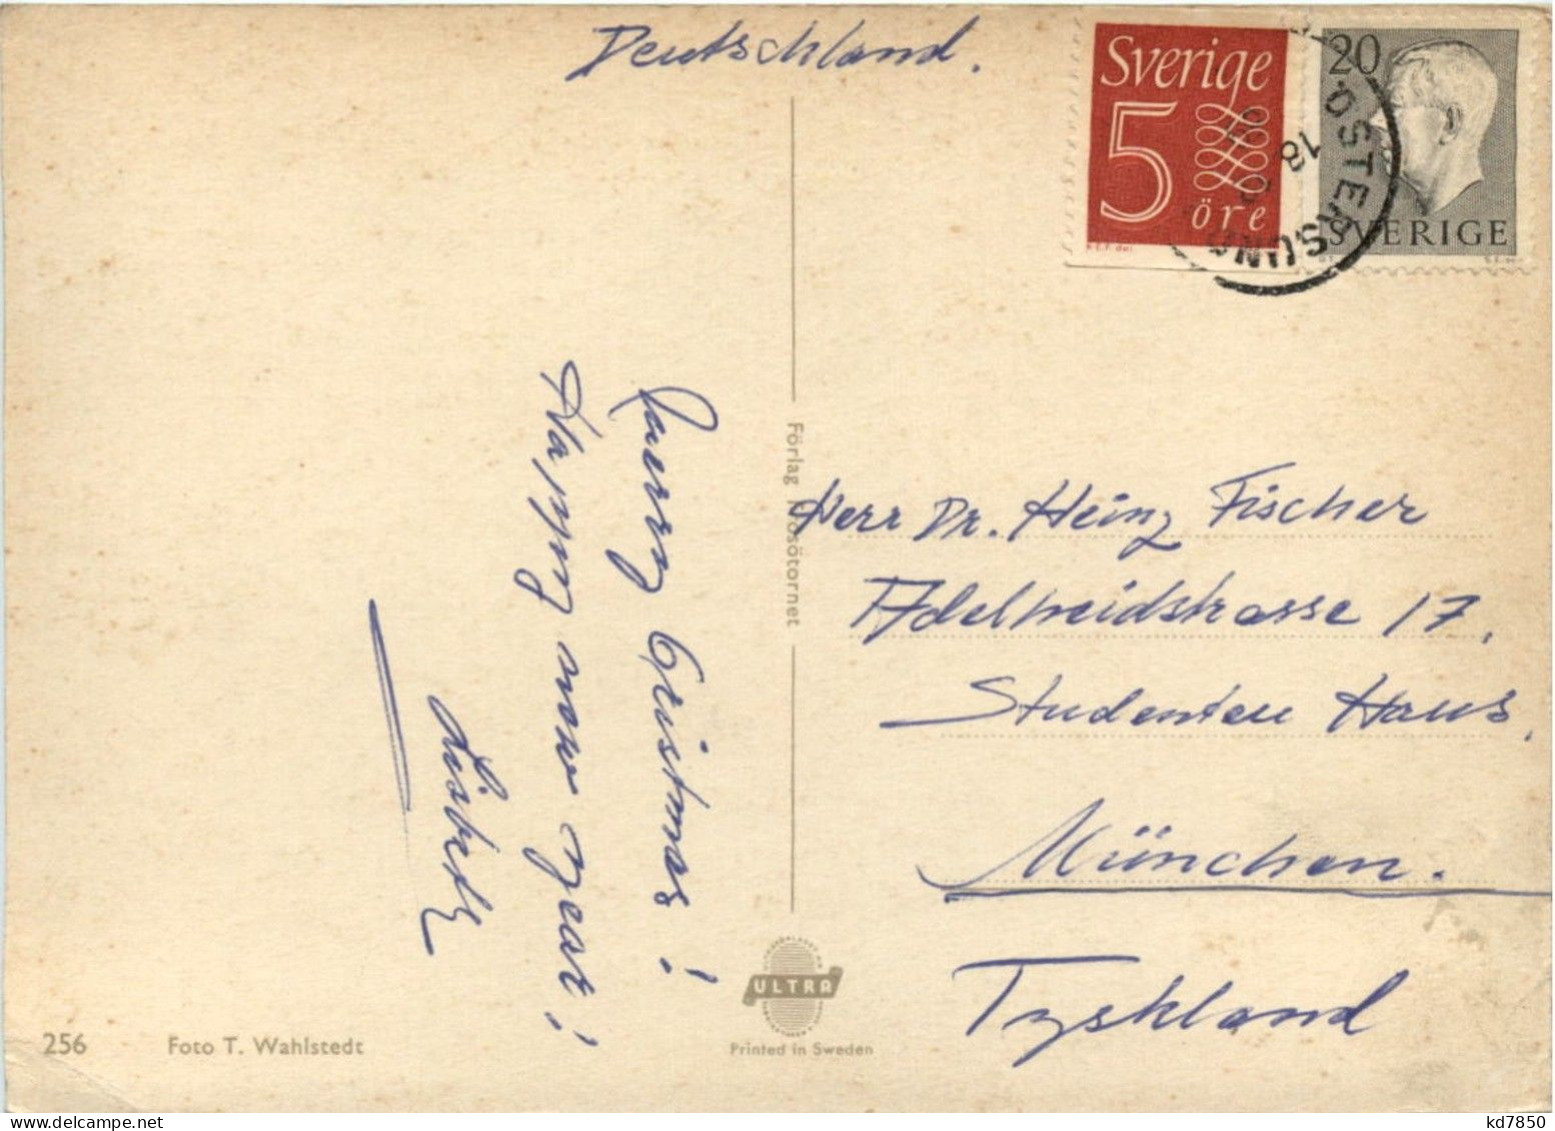 Deutschland.
Sverige
5
öre
20
SVERIGE
ÖSTERSUND
18
Merry Cristmas!
Happy new year!
Lisbeth
Förlag Frösötornet
Herr Dr. Heinz Fischer
Adelheidstrasse 17,
Studenten Haus,
München.
Tyskland
ULTRA
Printed in Sweden
256
Foto T. Wahlstedt
kd7850